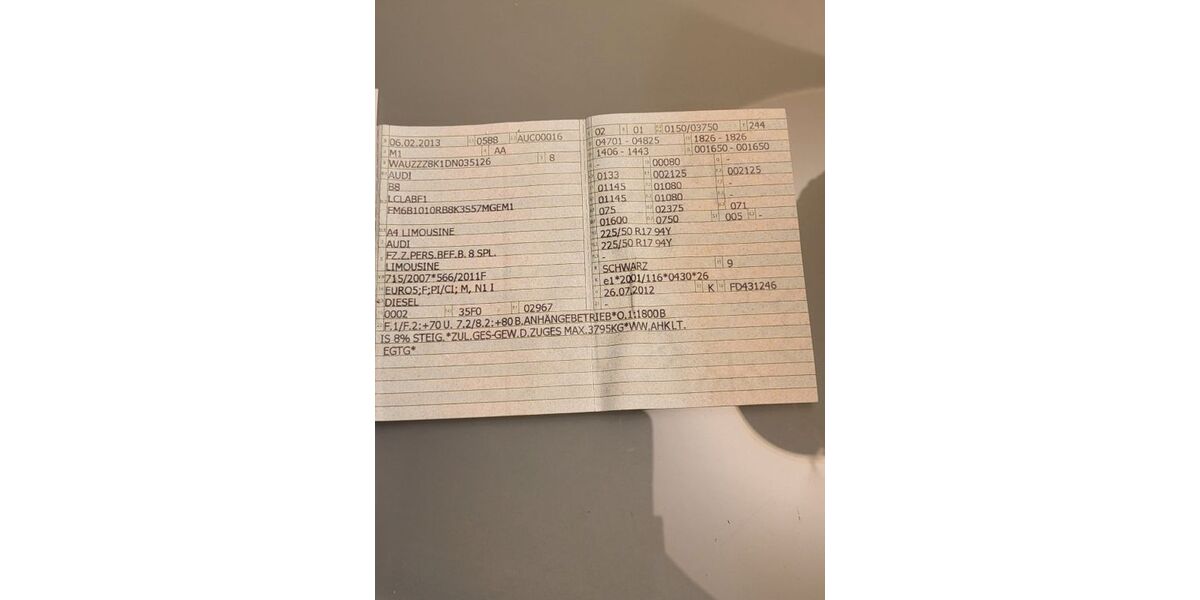 06.02.2013 0588 AUC00016
M1 AA
WAUZZZ8K1DN035126 8
AUDI
B8
LCLABF1
FM6B1010RB8K3S57MGEM1
A4 LIMOUSINE
AUDI
FZ.Z.PERS.BEF.B. 8 SPL.
LIMOUSINE
715/2007*566/2011F
EURO5;F;PI/CI; M, N1 I
DIESEL
0002 35F0 02967
02 01 0150/03750 244
04701 - 04825 1826 - 1826
1406 - 1443 001650 - 001650
- 00080 -
0133 002125 002125
01145 01080 -
01145 01080 -
075 02375 071
01600 0750 005 -
225/50 R17 94Y
225/50 R17 94Y
-
SCHWARZ 9
e1*2001/116*0430*26
26.07.2012 K FD431246
-
F.1/F.2:+70 U. 7.2/8.2:+80 B.ANHÄNGEBETRIEB*O.1:1800 B
IS 8% STEIG.*ZUL.GES-GEW.D.ZUGES MAX.3795KG*WW.AHK LT.
EGTG*